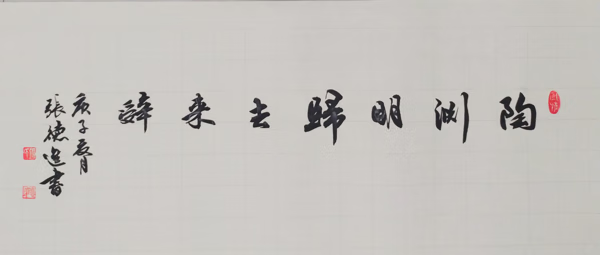 陶渊明歸去来辭
庚子夏月
張德選書